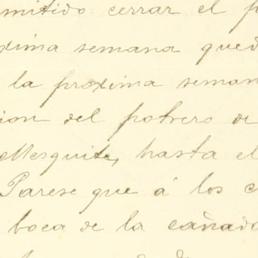 mitido cerrar el p
xima semana qued
la proxima seman
ion del potrero de
Mesquite, hasta el
Parese que á los c
boca de la cañad